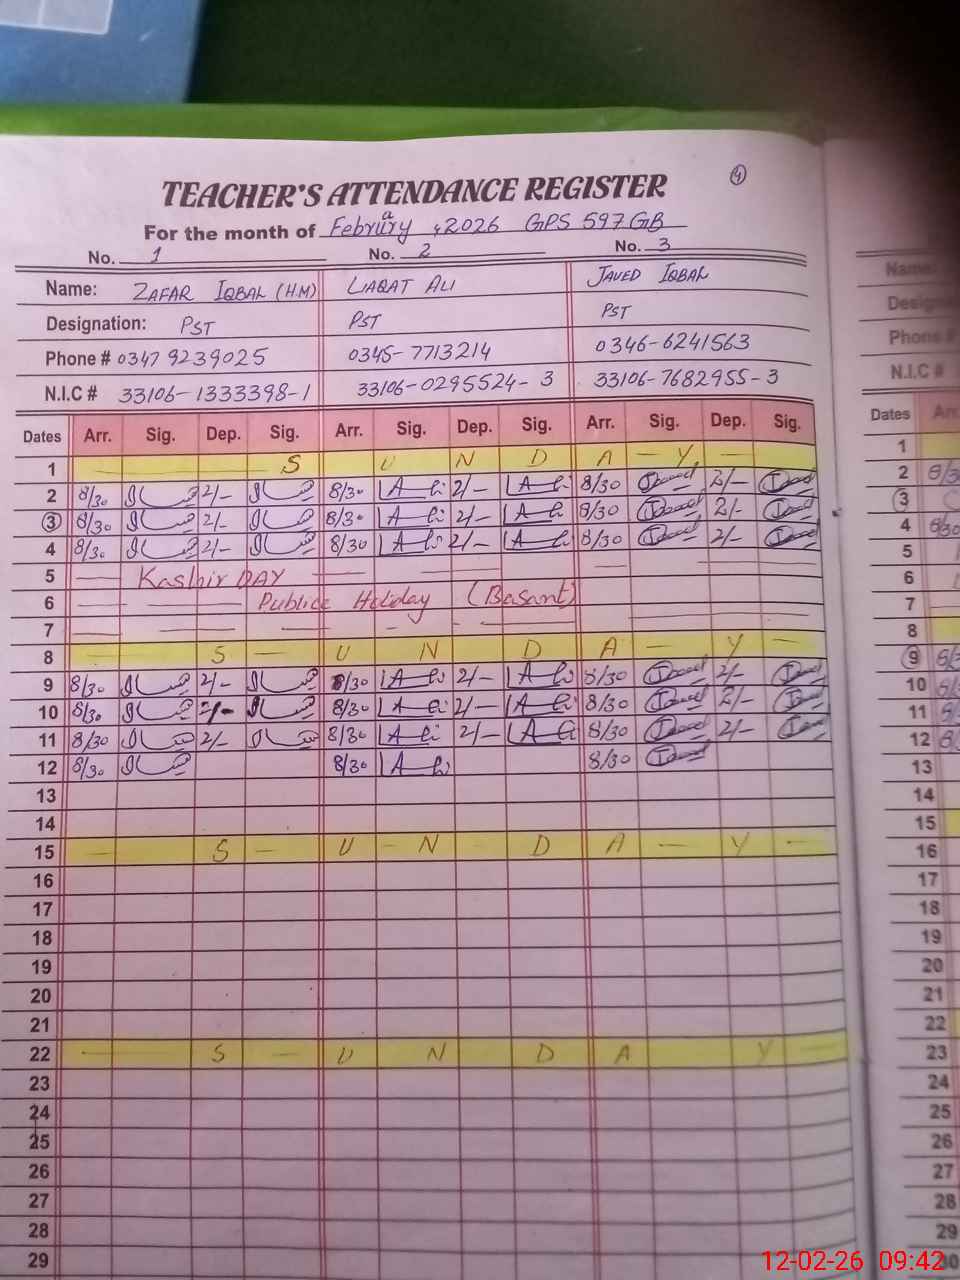 4
TEACHER'S ATTENDANCE REGISTER
For the month of February, 2026 GPS 597 GB
No. 1 No. 2 No. 3
Name: ZAFAR IQBAL (H.M) LIAQAT ALI JAVED IQBAL
Designation: PST PST PST
Phone # 0347 9239025 0345-7713214 0346-6241563
N.I.C # 33106-1333398-1 33106-0295524-3 33106-7682955-3
Dates Arr. Sig. Dep. Sig. Arr. Sig. Dep. Sig. Arr. Sig. Dep. Sig.
1 S U N D A Y
2 8/30 2/- 8/30 2/- 8/30 2/-
3 8/30 2/- 8/30 2/- 8/30 2/-
4 8/30 2/- 8/30 2/- 8/30 2/-
5 Kashir DAY
6 Publice Holiday (Basant)
7
8 S U N D A Y
9 8/30 2/- 8/30 2/- 8/30 2/-
10 8/30 2/- 8/30 2/- 8/30 2/-
11 8/30 2/- 8/30 2/- 8/30 2/-
12 8/30 8/30 8/30
13
14
15 S U N D A Y
16
17
18
19
20
21
22 S U N D A Y
23
24
25
26
27
28
29
Name:
Phone #
N.I.C #
Dates Arr.
1
2
3
4
5
6
7
8
9
10
11
12
13
14
15
16
17
18
19
20
21
22
23
24
25
26
27
28
29
30
12-02-26 09:42